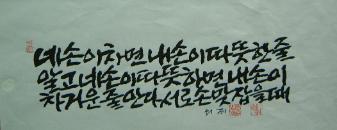 네손이차면내손이따뜻한줄
알고네손이따뜻하면내손이
차가운줄안다서로손맞잡을때